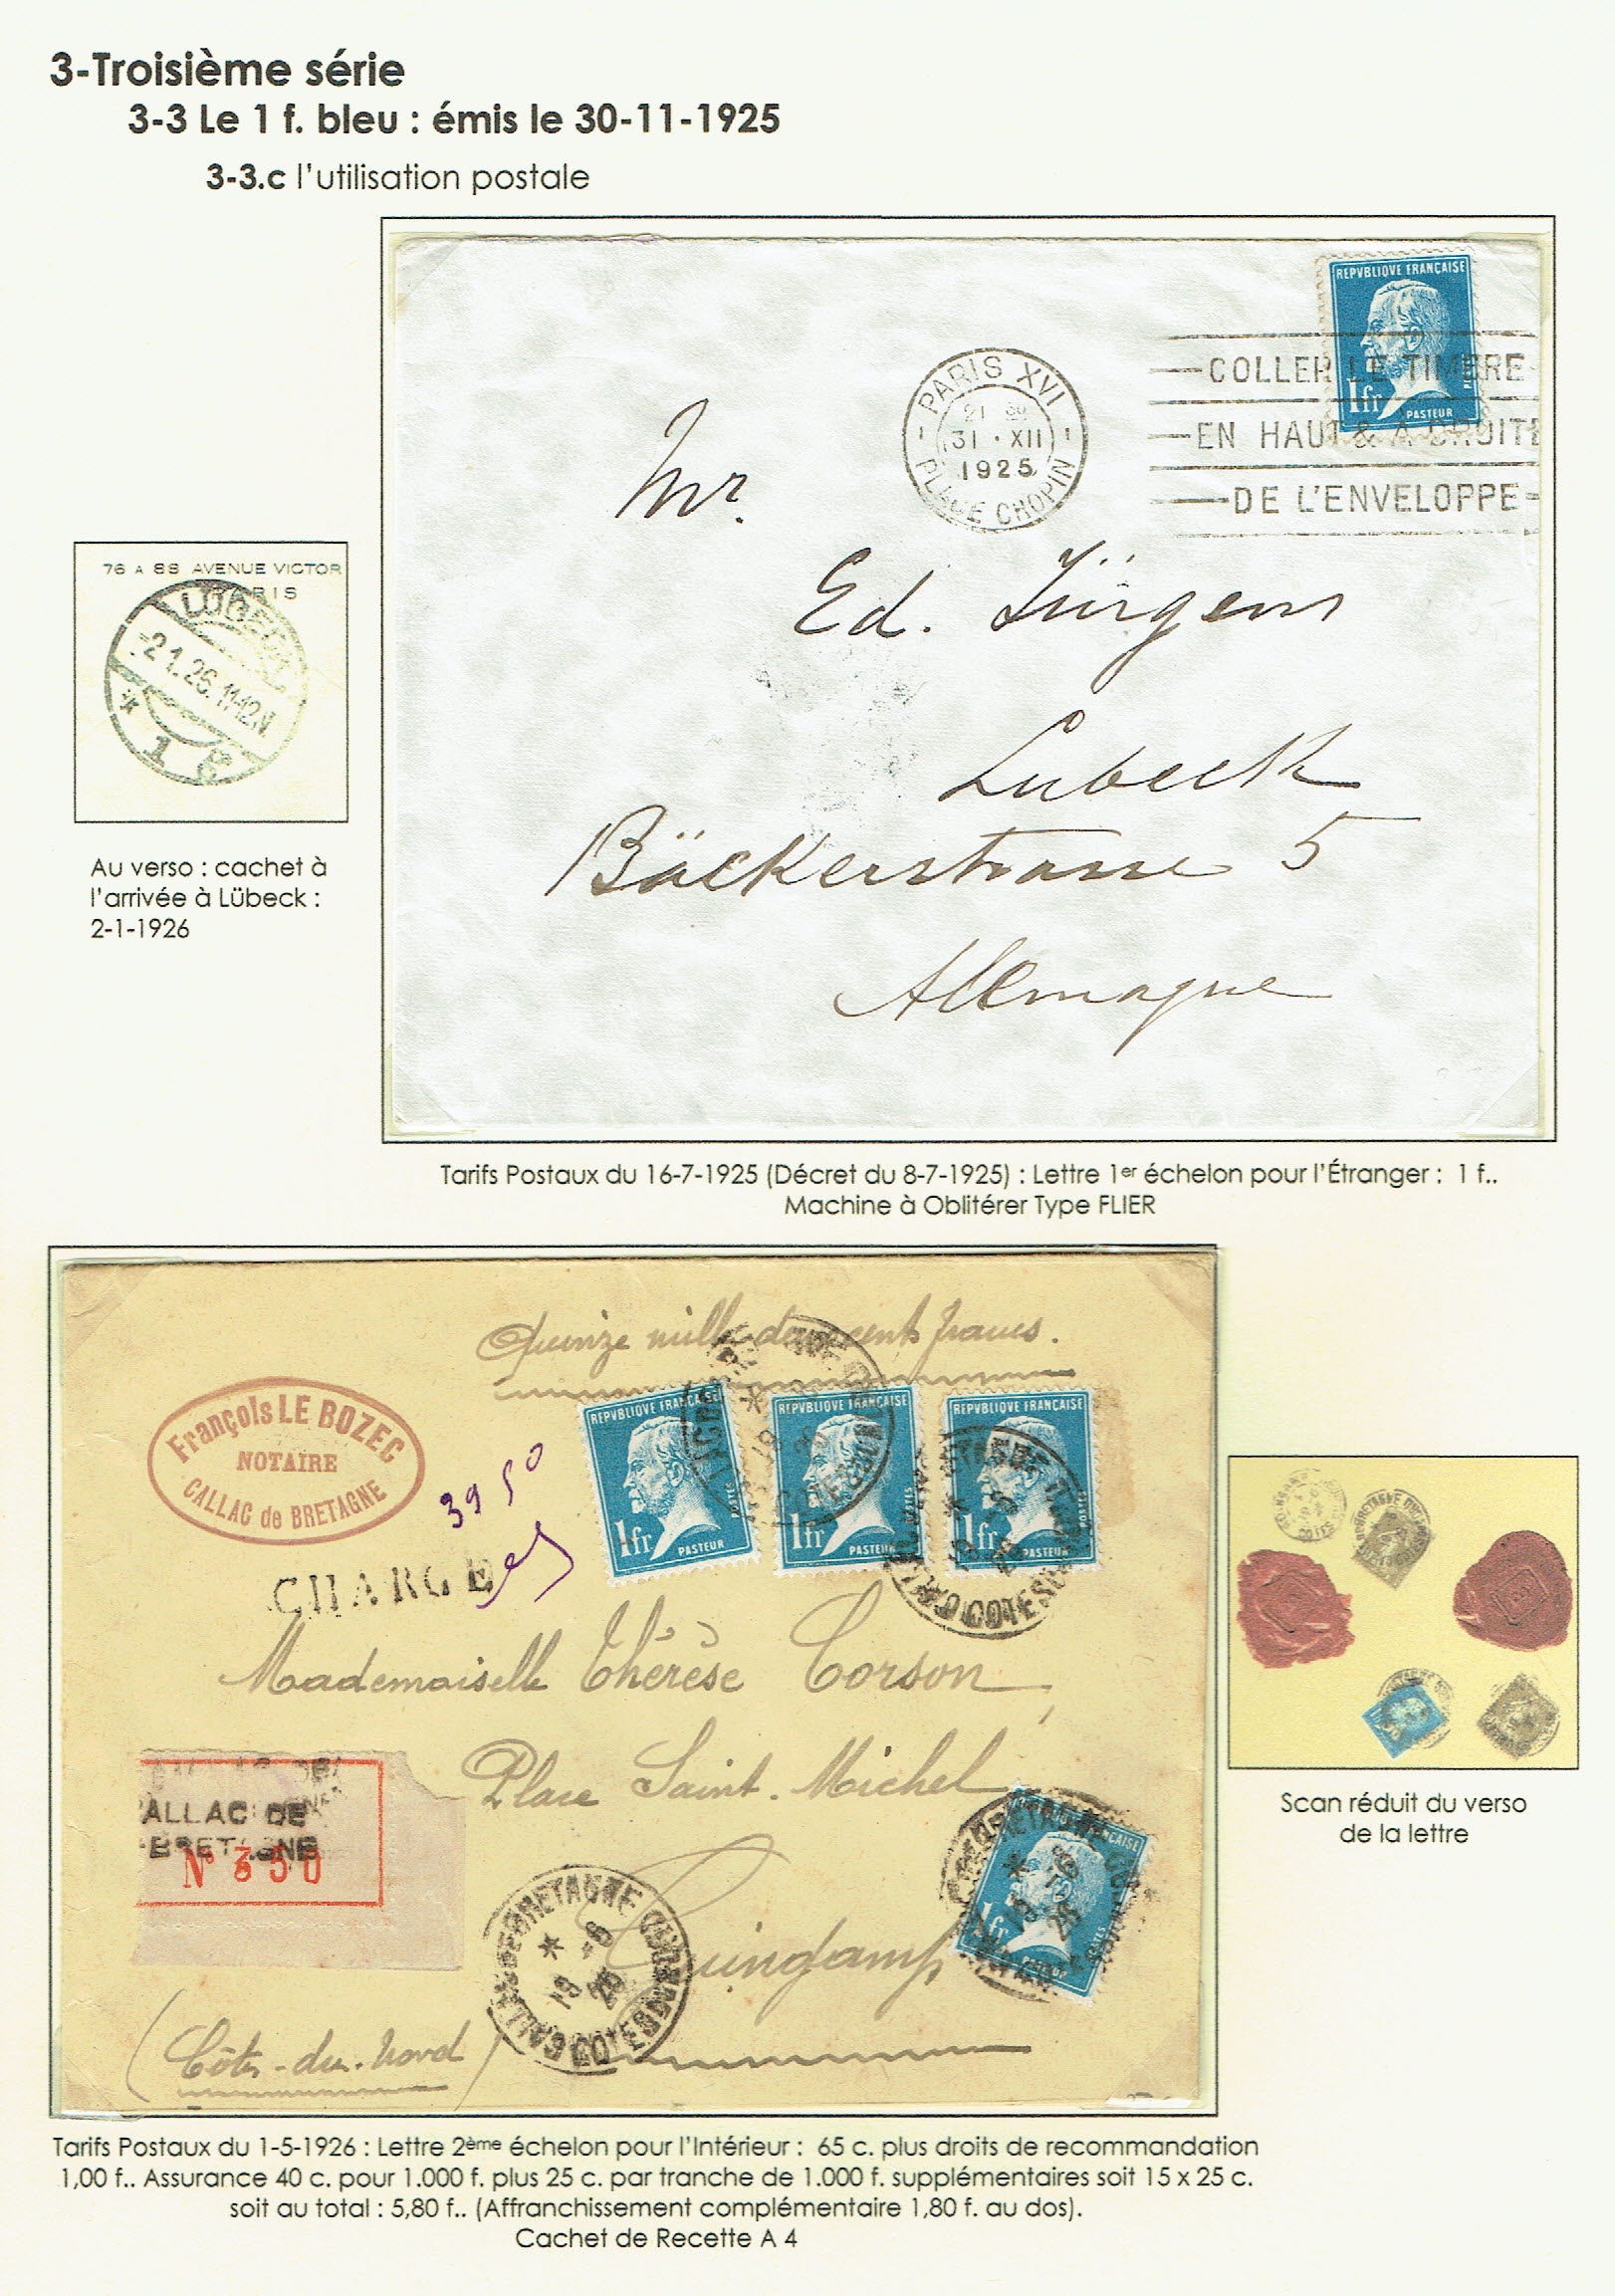 3-Troisième série
3-3 Le 1 f. bleu : émis le 30-11-1925
3-3.c l'utilisation postale
REPVBLIQUE FRANÇAISE
1fr
PASTEUR
PARIS XVI
21 30
31 · XII
1925
PLACE CHOPIN
COLLER LE TIMBRE
EN HAUT & A DROITE
DE L'ENVELOPPE
Mr.
Ed. Jürgens
Lubeck
Bäckerstrasse 5
Allemagne
76 A 88 AVENUE VICTOR
PARIS
LÜBECK
-2.1.26.11-12.N
* 1
Au verso : cachet à
l'arrivée à Lübeck :
2-1-1926
Tarifs Postaux du 16-7-1925 (Décret du 8-7-1925) : Lettre 1er échelon pour l'Étranger : 1 f..
Machine à Oblitérer Type FLIER
Quinze mille deux cents francs.
François LE BOZEC
NOTAIRE
CALLAC de BRETAGNE
39 50
REPVBLIQUE FRANÇAISE
1fr
POSTES
PASTEUR
REPVBLIQUE FRANÇAISE
1fr
POSTES
PASTEUR
REPVBLIQUE FRANÇAISE
1fr
PASTEUR
CHARGE
Mademoiselle Thérèse Corson
Place Saint Michel
ALLAC DE
BRETAGNE
N° 350
Guingamp
1fr
POSTES
PASTEUR
BRETAGNE
19 -6
26
COTES DU NORD
(Côtes-du-Nord)
Scan réduit du verso
de la lettre
Tarifs Postaux du 1-5-1926 : Lettre 2ème échelon pour l'Intérieur : 65 c. plus droits de recommandation
1,00 f.. Assurance 40 c. pour 1.000 f. plus 25 c. par tranche de 1.000 f. supplémentaires soit 15 x 25 c.
soit au total : 5,80 f.. (Affranchissement complémentaire 1,80 f. au dos).
Cachet de Recette A 4